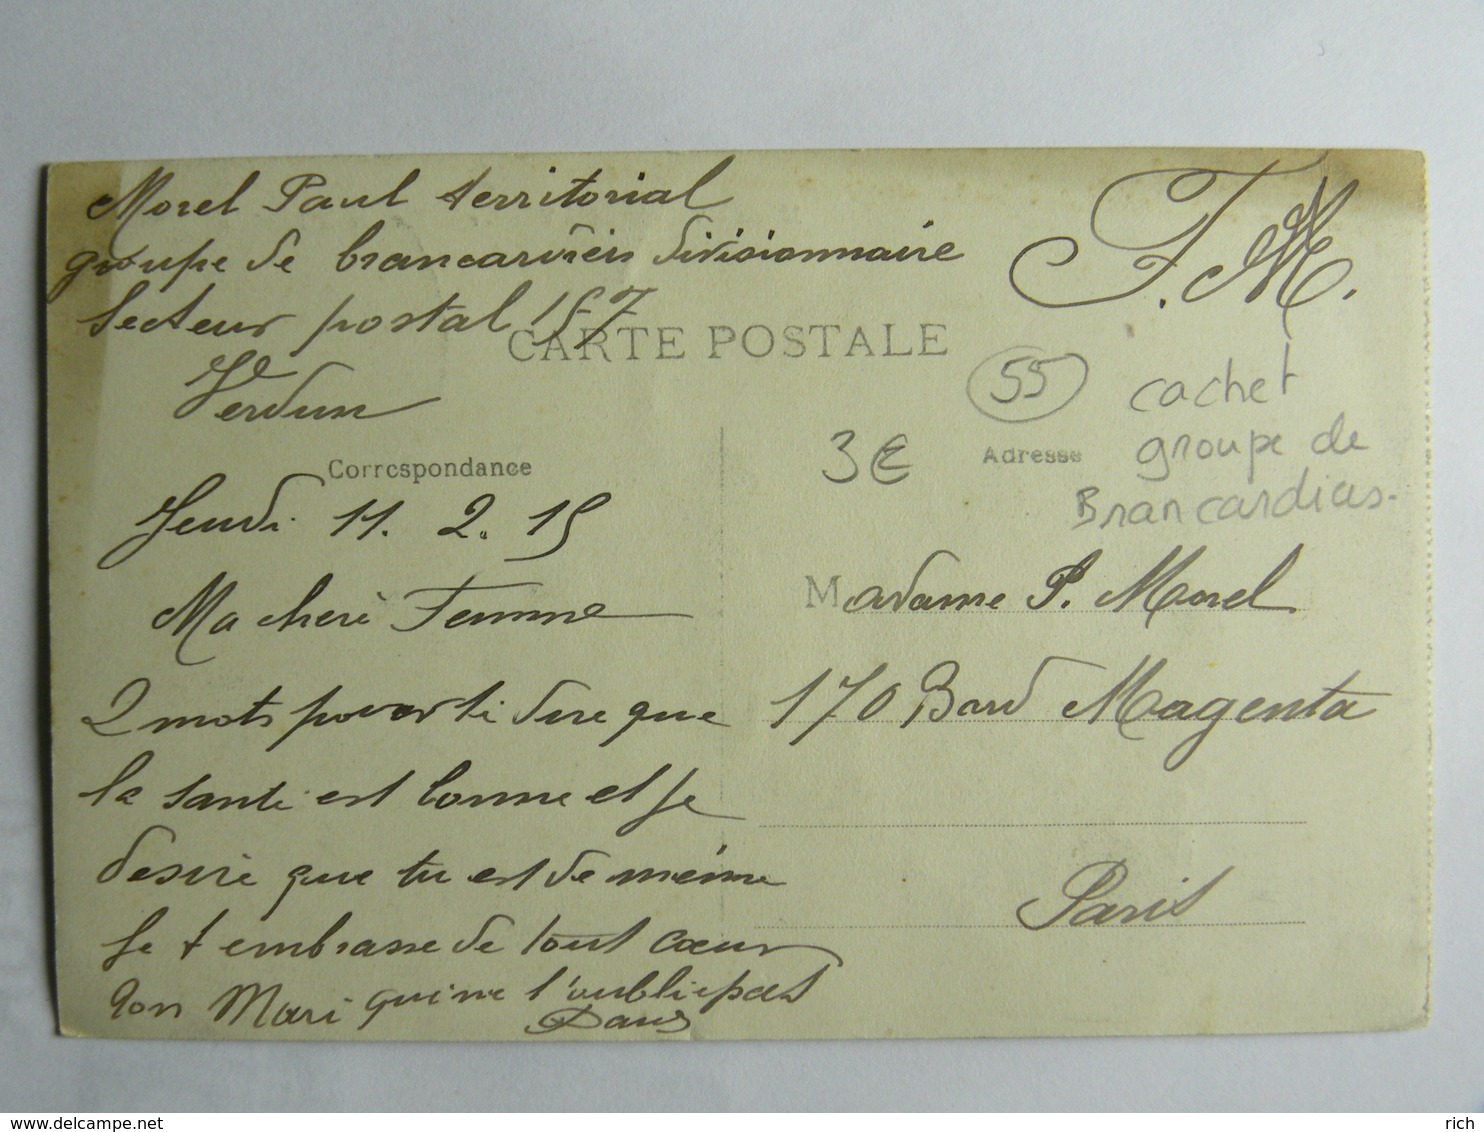 Morel Paul territorial
groupe de brancardiers divisionnaire
Secteur postal 157
Verdun
F.M.
CARTE POSTALE
55
cachet
groupe de
Brancardiers.
3€
Correspondance
Adresse
Jeudi 11. 2. 15
Ma cheré Femme
2 mots pour te dire que
la santé est bonne et je
desire que tu est de méme
Je t embrasse de tout cœur
Ton Mari qui ne l'oublie pas
Madame P. Morel
170 Bard Magenta
Paris
delcampe.net
rich